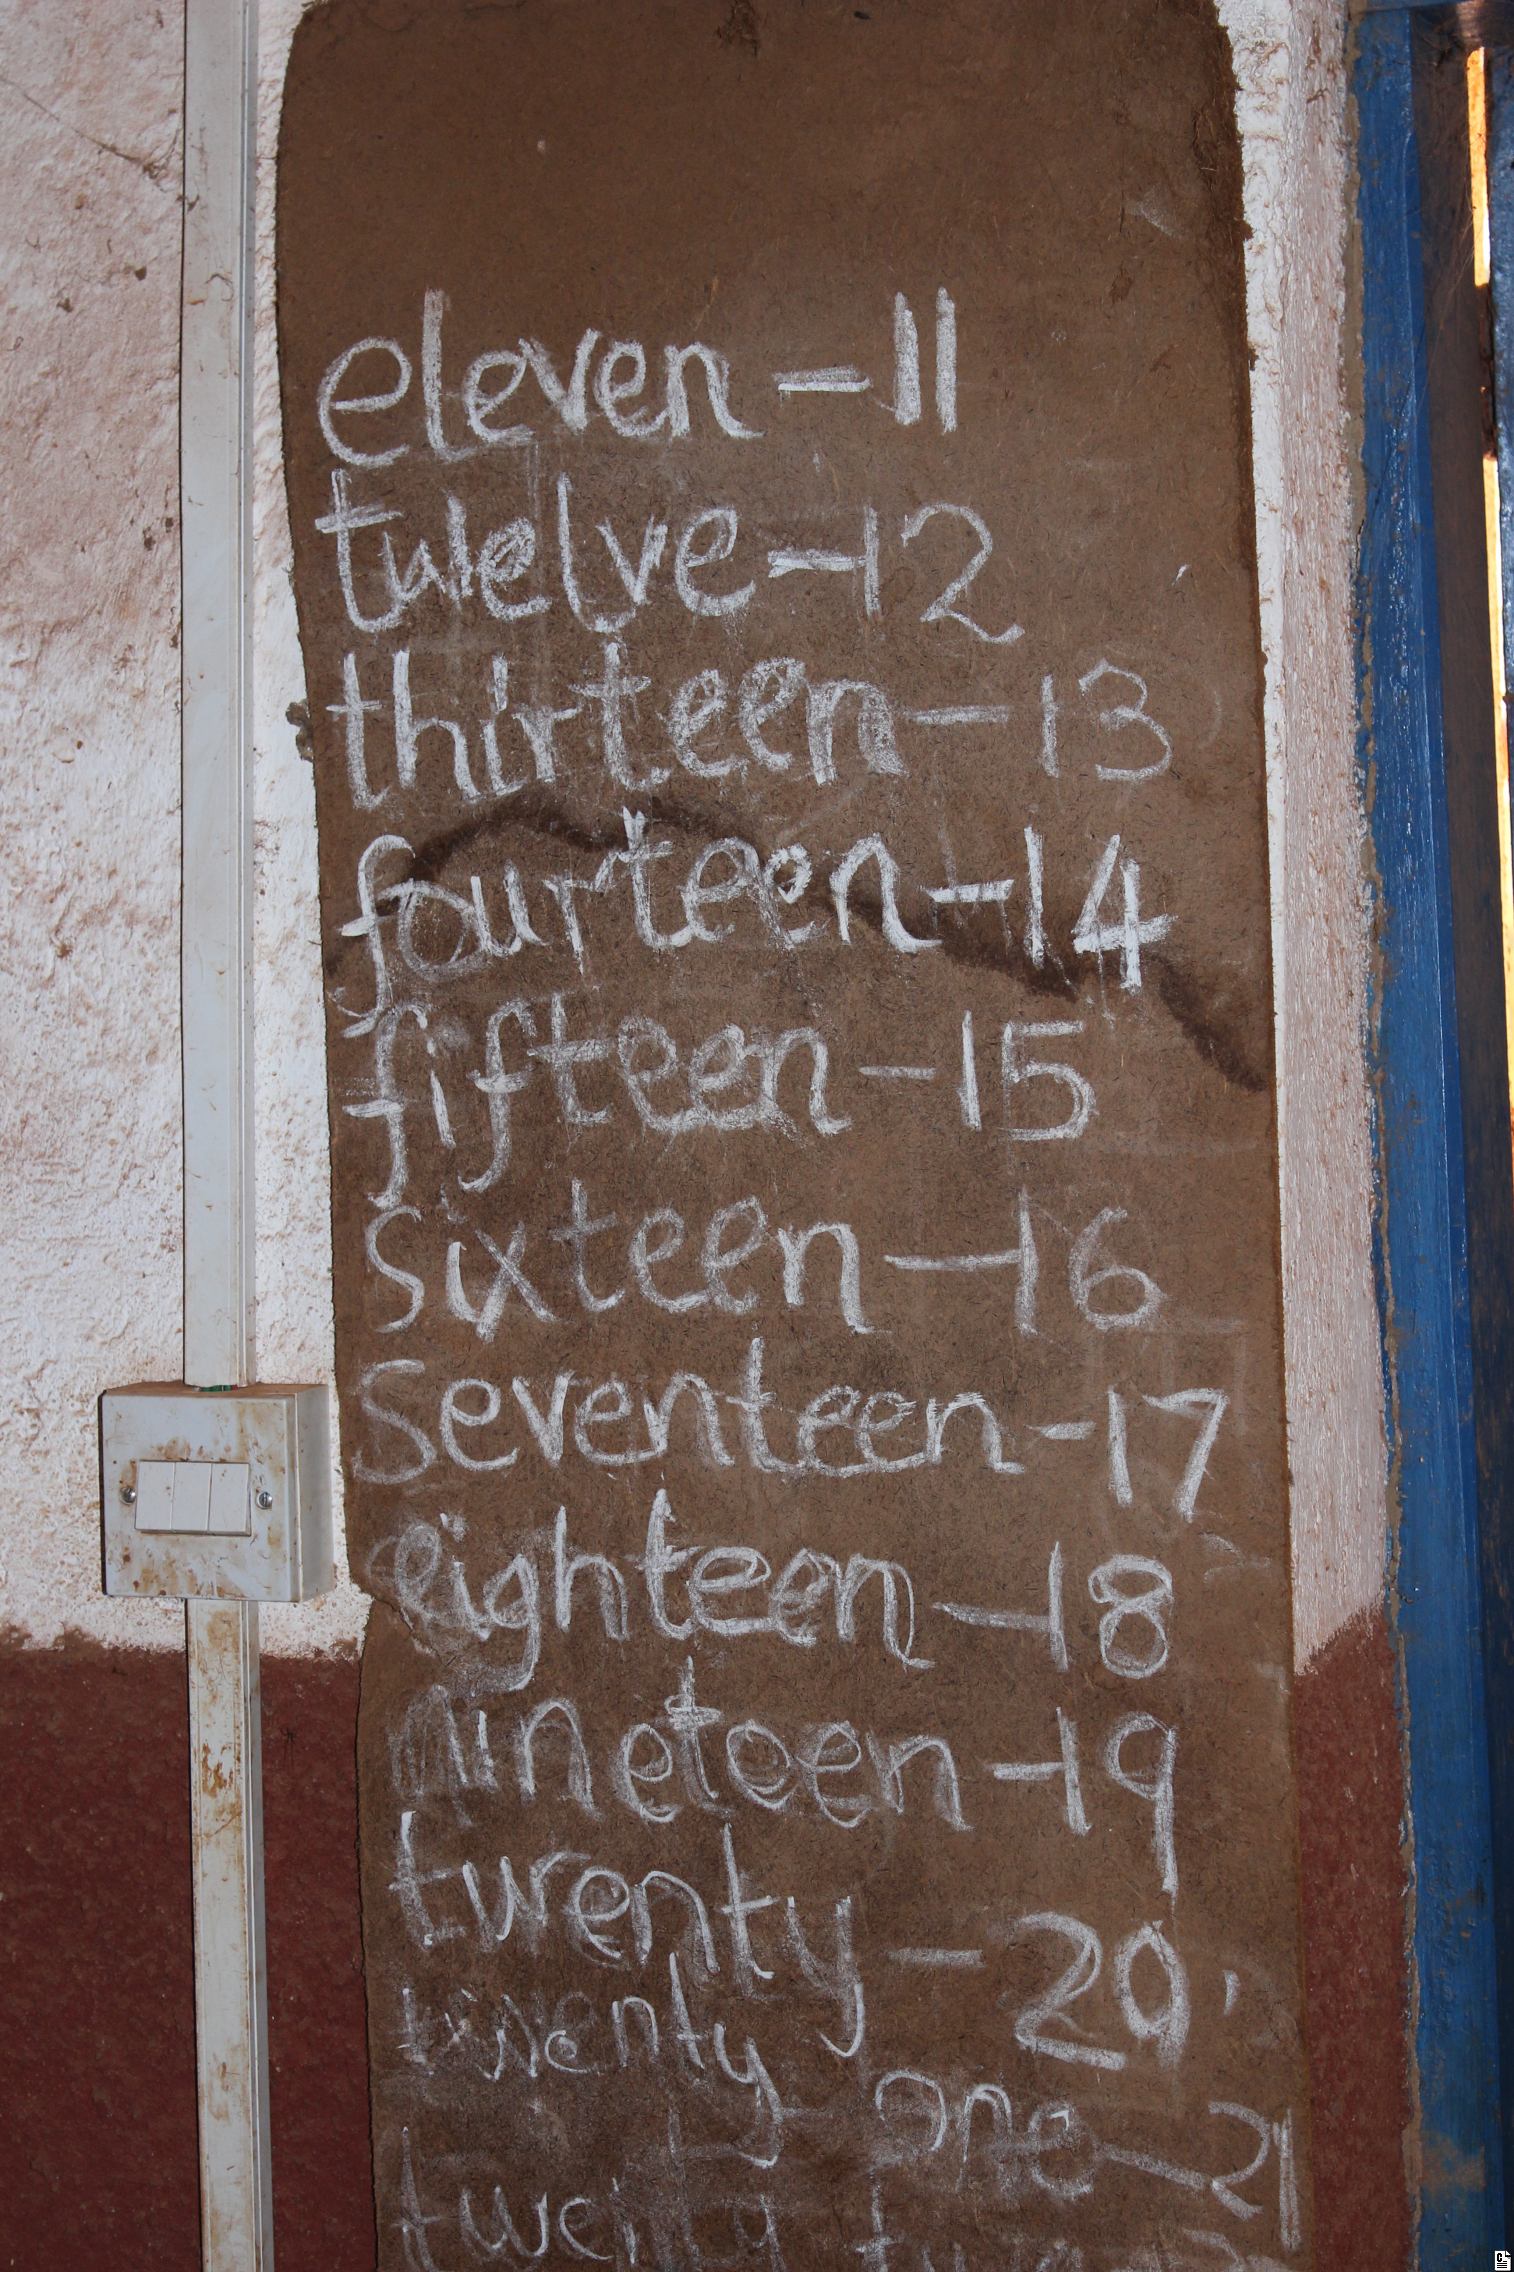 eleven - 11
twelve - 12
thirteen - 13
fourteen - 14
fifteen - 15
sixteen - 16
seventeen - 17
eighteen - 18
nineteen - 19
twenty - 20
twenty one - 21
twenty